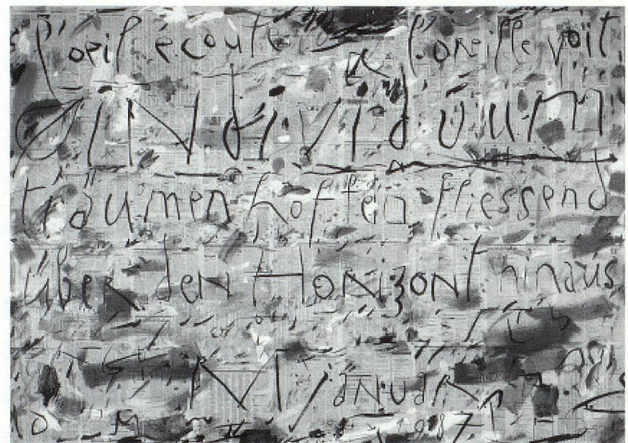 l'oeil écoute l'oreille voit
INdividuum
träumen hoffen fliessend
über den Horizont hinaus
JaNuaR
1987